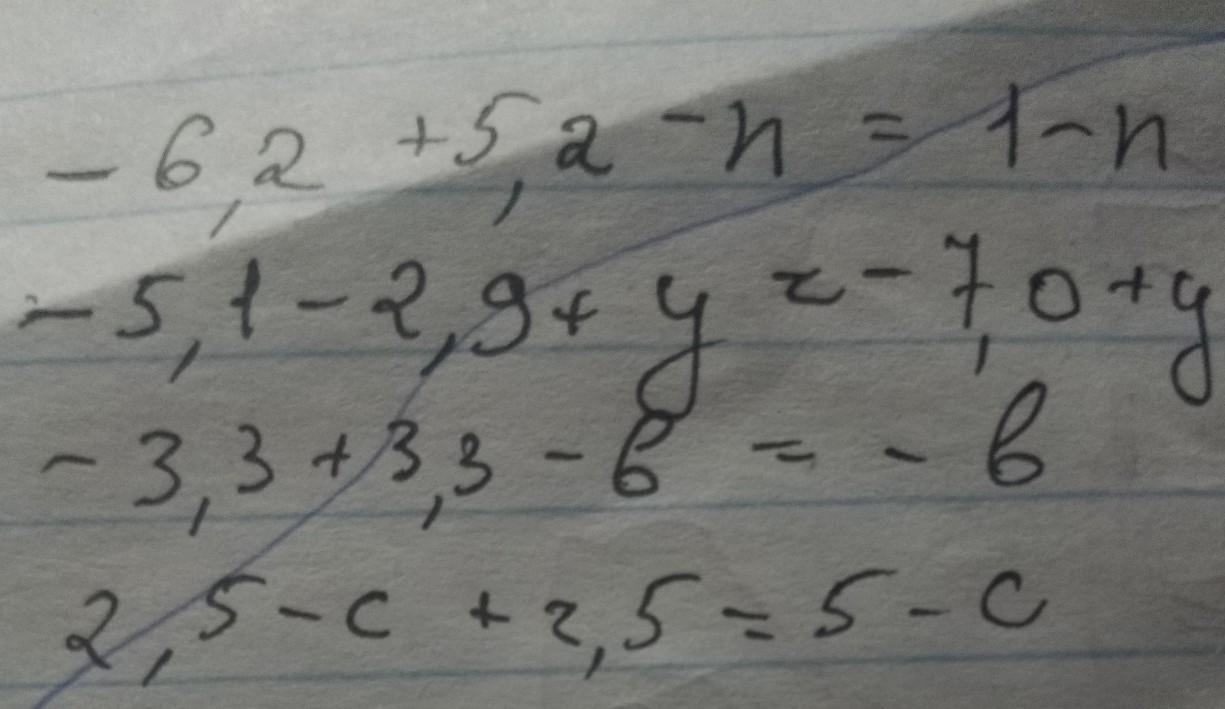 - 6,2 + 5,2 - n = 1 - n
- 5,1 - 2,9 + y = - 7,0 + y
- 3,3 + 3,3 - b = - b
2,5 - c + 2,5 = 5 - c